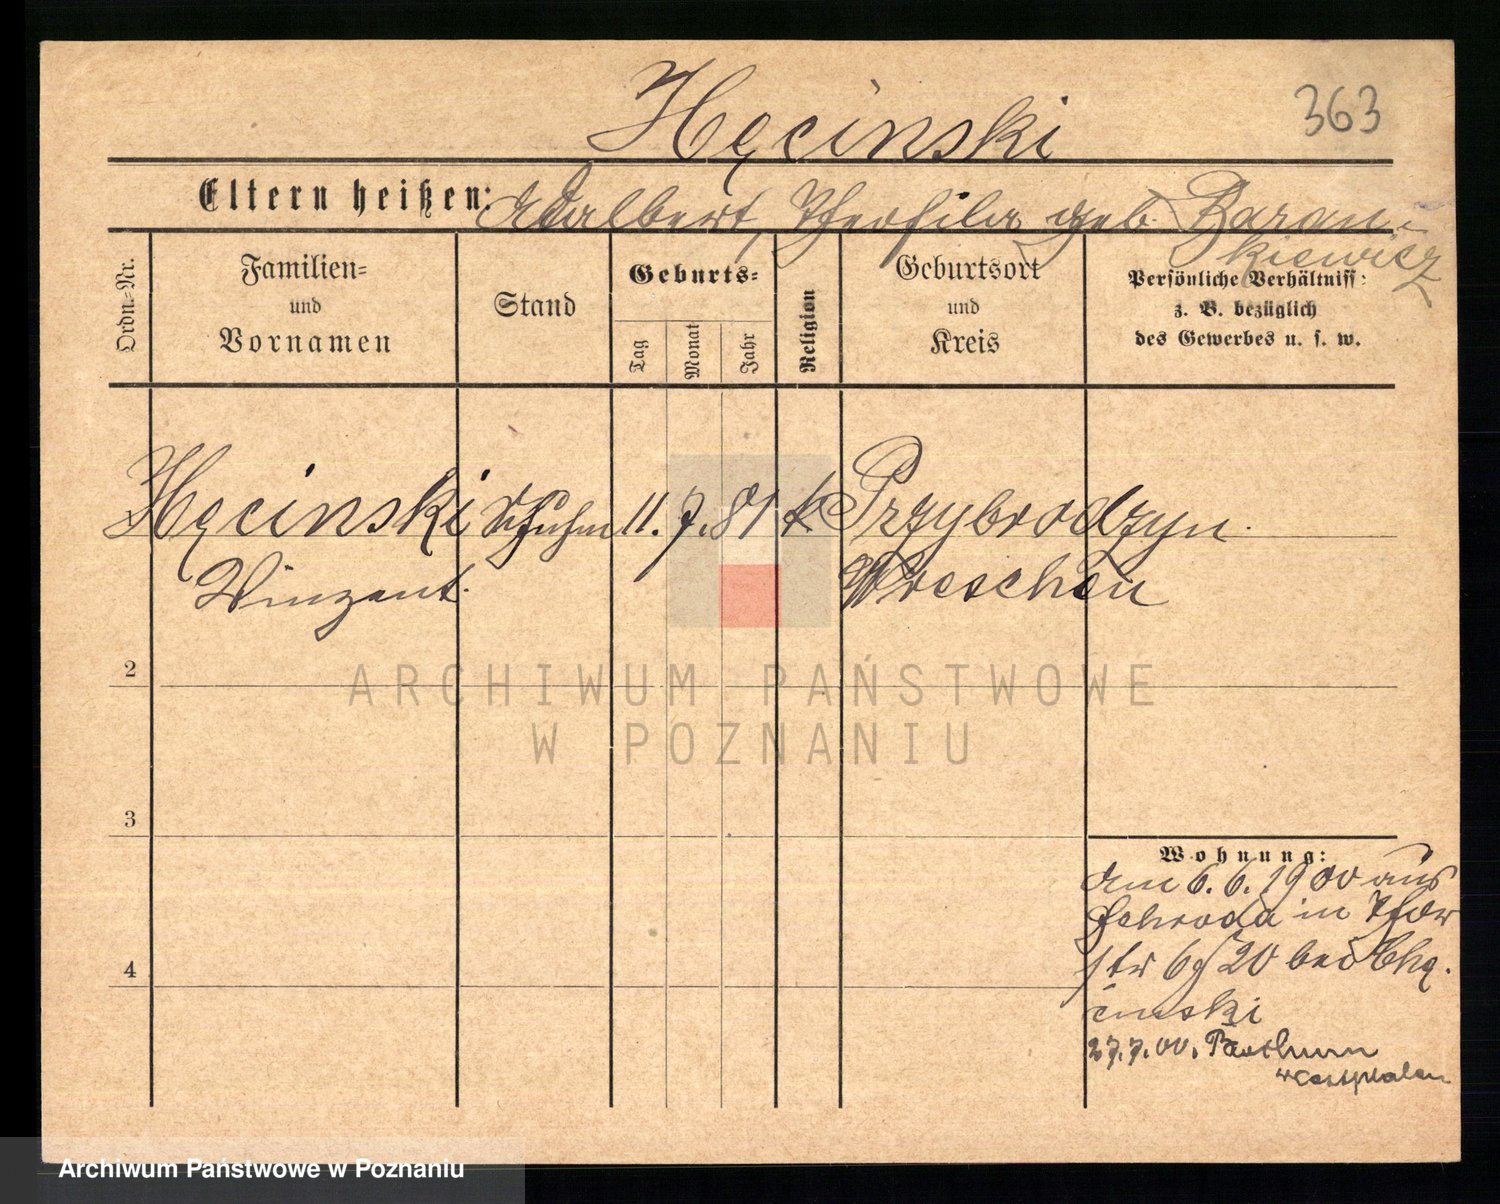 363
Hęcinski
Eltern heißen: Adalbert, Theofila geb. Baran-
kiewicz
Ordn=Nr.
Familien=
und
Vornamen
Stand
Geburts=
Tag
Monat
Jahr
Religion
Geburtsort
und
Kreis
Persönliche Verhältniss:
z. B. bezüglich
des Gewerbes u. s. w.
Hęcinski Schuhm 11. 7. 81 k Przybrodzyn
Winzent. Wreschen
2
ARCHIWUM PAŃSTWOWE
W POZNANIU
3
Wohnung:
am 6.6.1900 aus
Schroda in
str 20 bei Chę-
cinski
27.7.00. Bochum
Westphalen
4
Archiwum Państwowe w Poznaniu